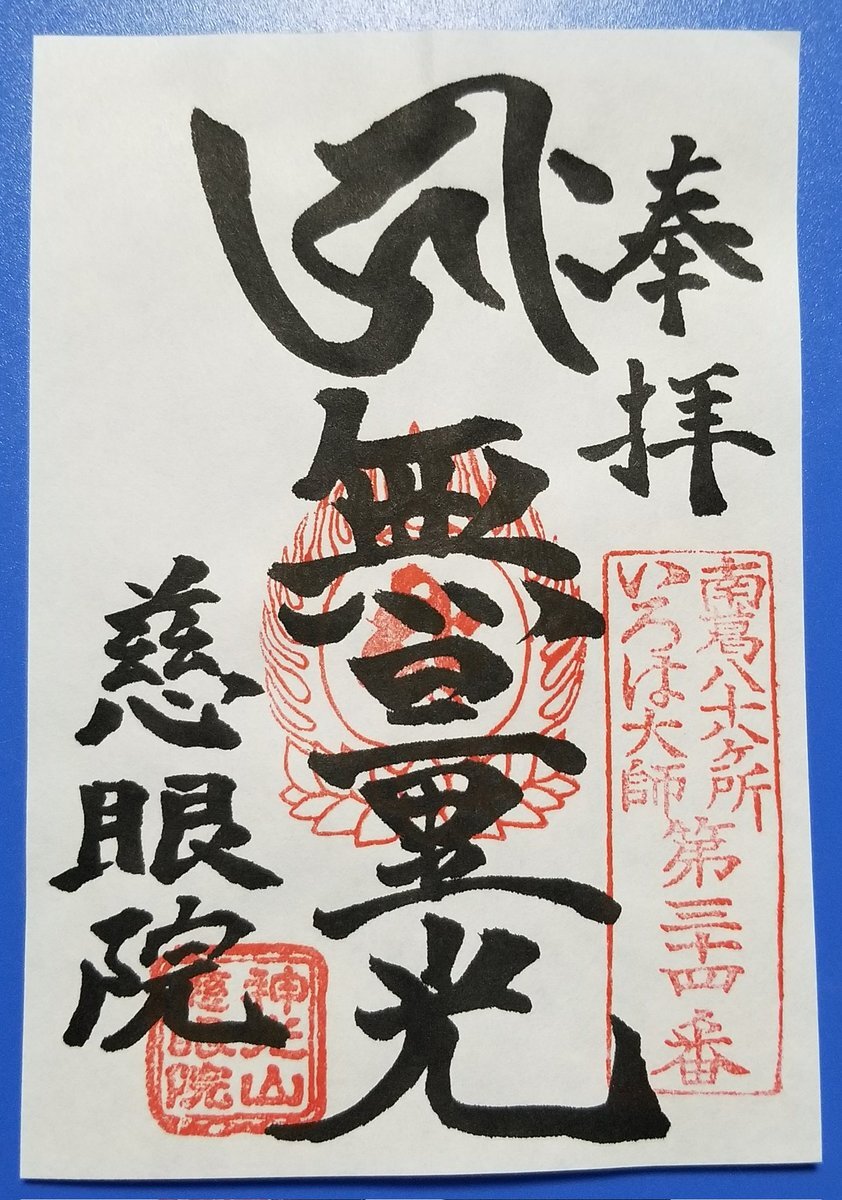 奉拝
南葛八十八ヶ所
いろは大師
第三十四番
無量光
慈眼院
神光山
慈眼院